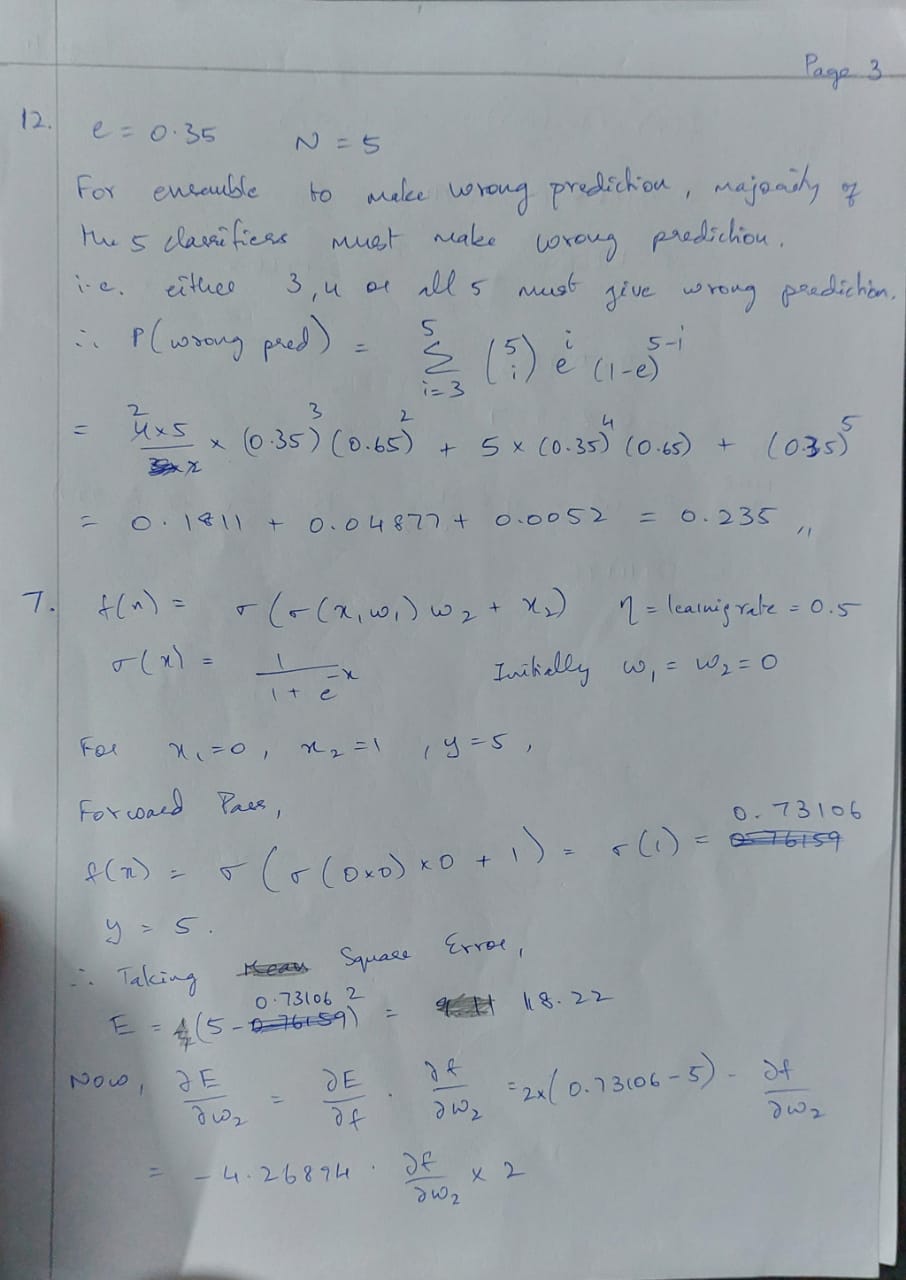 Page 3
12. e = 0.35 N = 5
For ensemble to make wrong prediction, majority of
the 5 classifiers must make wrong prediction.
i.e. either 3, 4 or all 5 must give wrong prediction.
∴ P(wrong pred) = Σ_{i=3}^{5} (5 i) e^i (1-e)^{5-i}
= 4×5/2 × (0.35)^3 (0.65)^2 + 5 × (0.35)^4 (0.65) + (0.35)^5
= 0.1811 + 0.04877 + 0.0052 = 0.235 ,,
7. f(x) = σ(σ(x₁w₁)w₂ + x₂) η = learning rate = 0.5
σ(x) = 1/(1 + e^{-x}) Initially w₁ = w₂ = 0
For x₁=0, x₂=1, y=5,
Forward Pass,
f(x) = σ(σ(0×0)×0 + 1) = σ(1) = 0.73106
y = 5.
∴ Taking Square Error,
E = (5 - 0.73106)^2 = 18.22
Now, ∂E/∂w₂ = ∂E/∂f . ∂f/∂w₂ = 2×(0.73106-5) - ∂f/∂w₂
= -4.26894 . ∂f/∂w₂ × 2